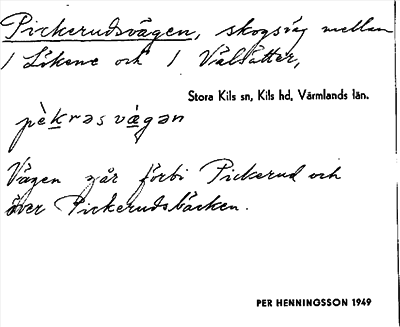 Pickerudsvägen, skogsväg mellan
1 Lökene och 1 Välsätter,
Stora Kils sn, Kils hd, Värmlands län.
pèkrəs vä̀gən
Vägen går förbi Pickerud och
över Pickerudsbäcken.
PER HENNINGSSON 1949